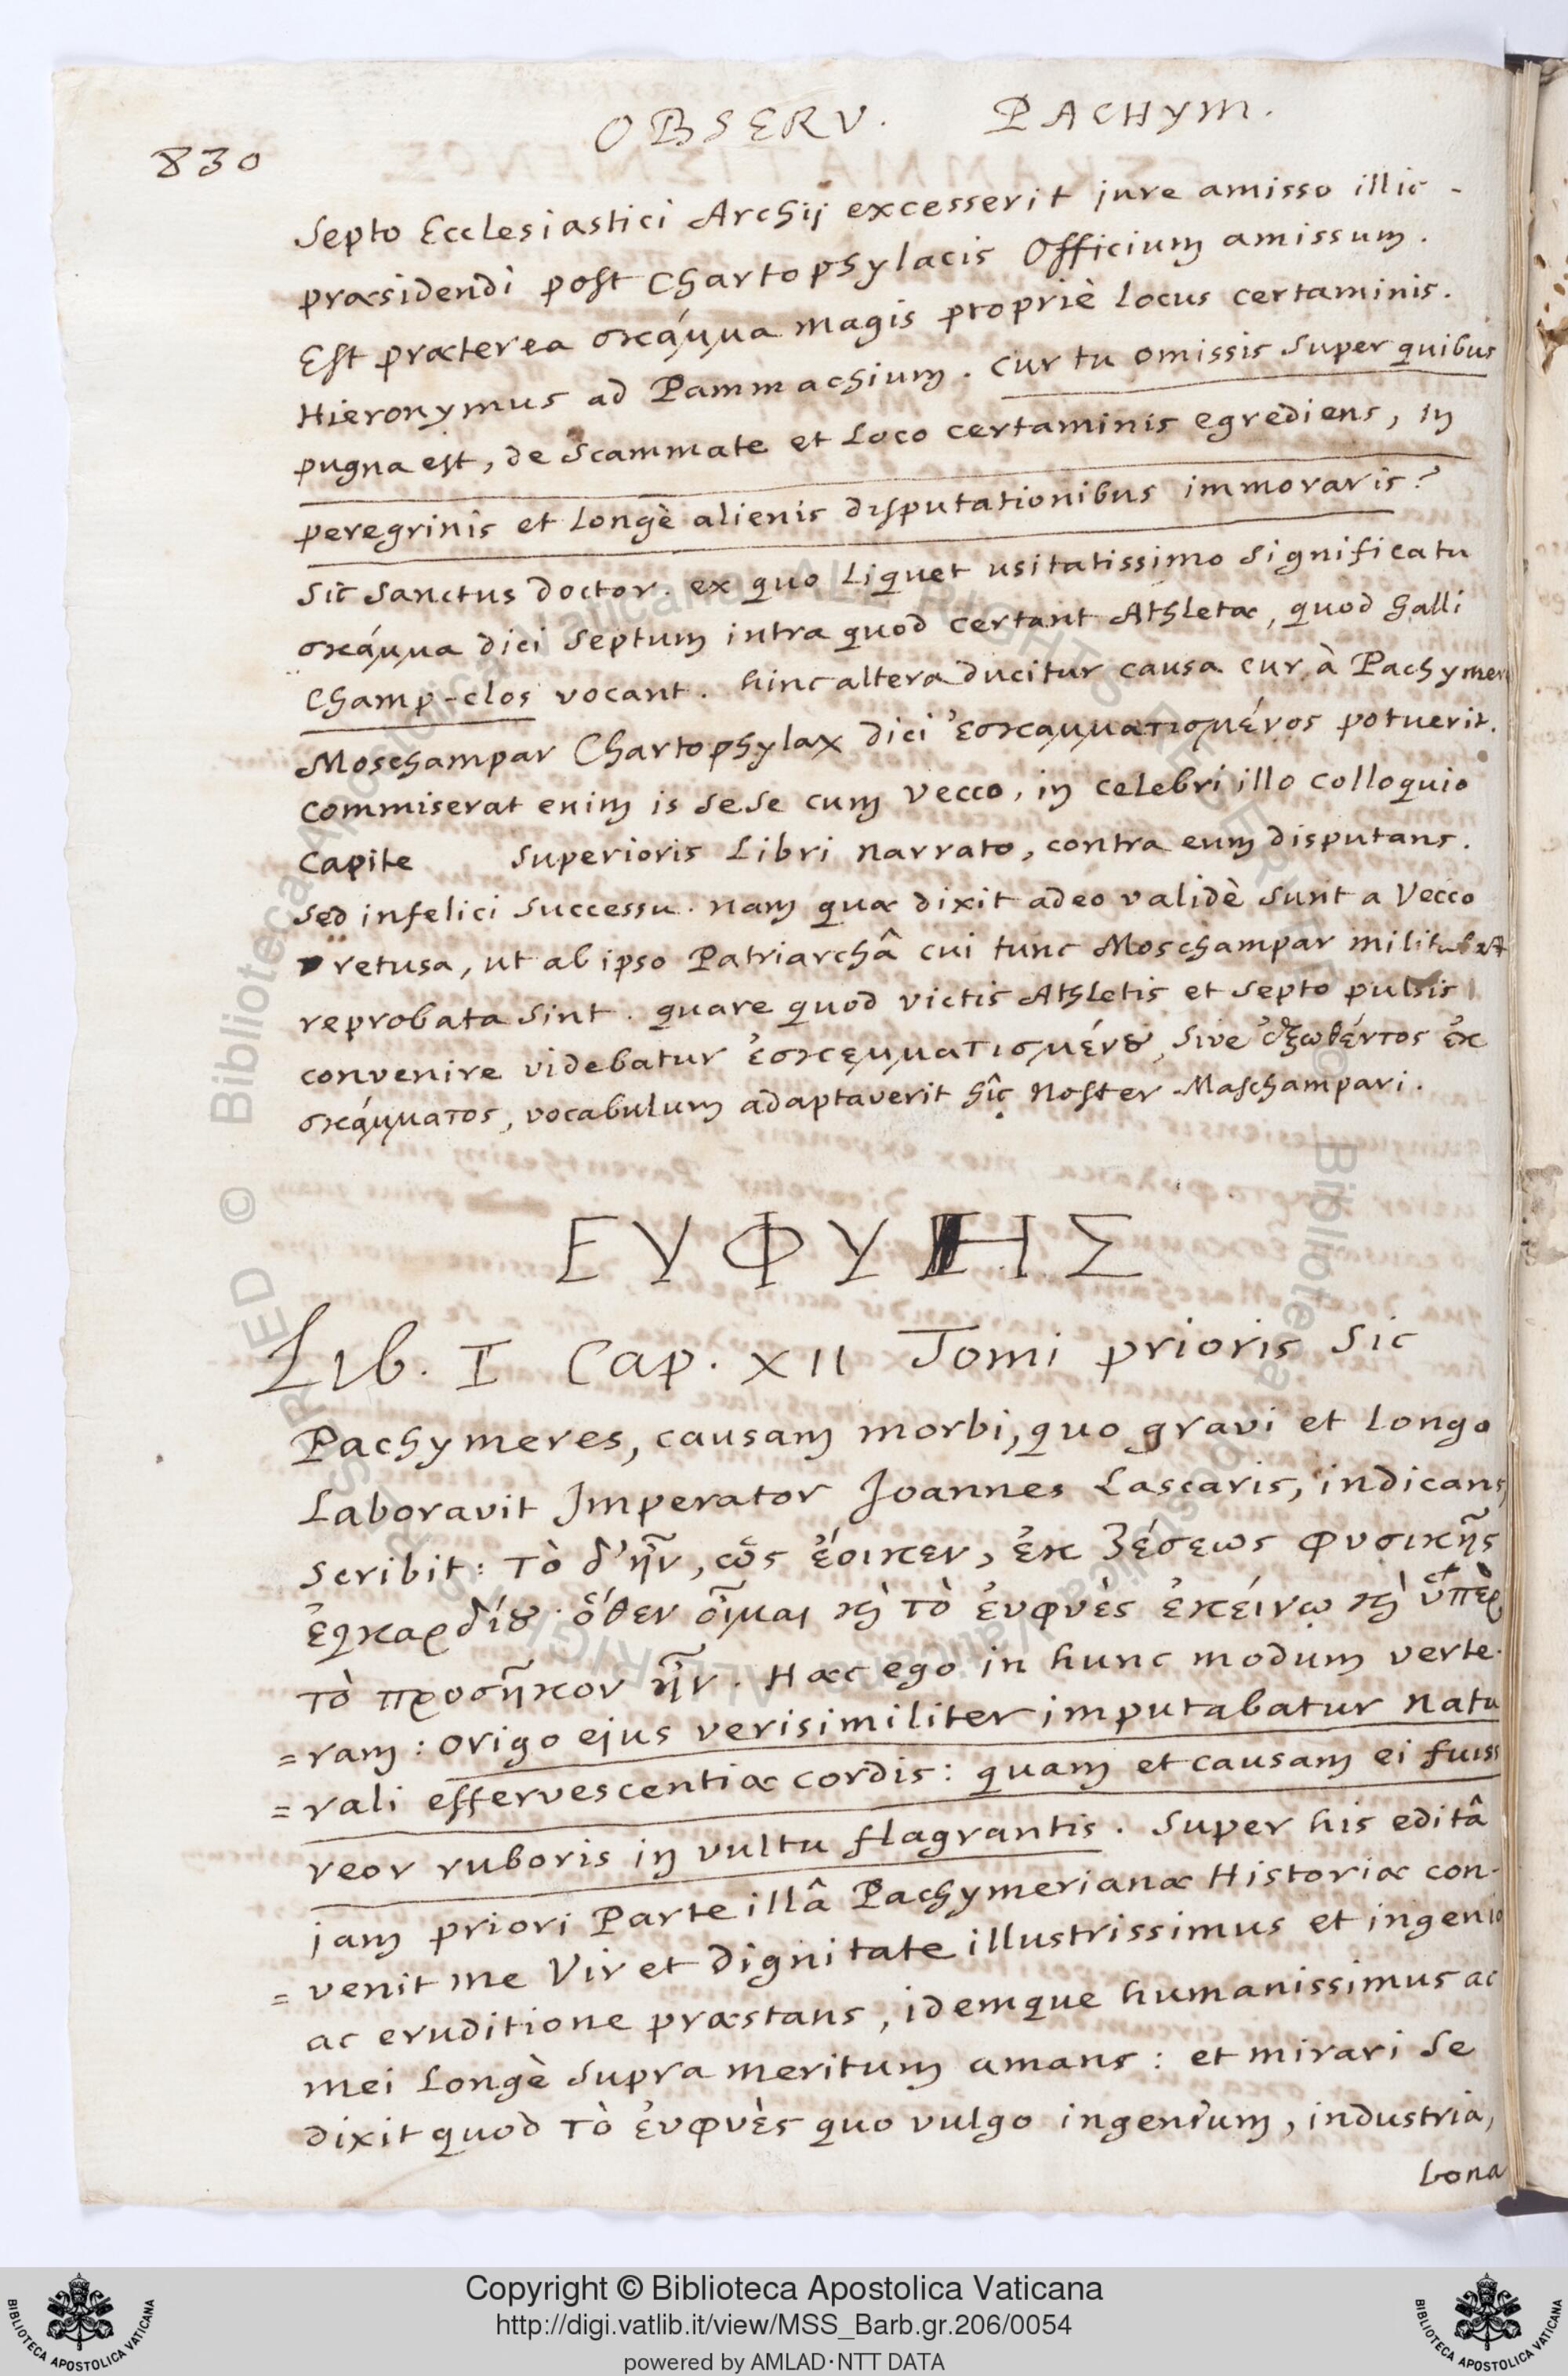 OBSERV. PACHYM.
830
Septo Ecclesiastici Archij excesserit jure amisso illic
præsidendi post Chartophylacis Officium amissum.
Est præterea σκάμμα magis propriè locus certaminis.
Hieronymus ad Pammachium. Cur tu omissis super quibus
pugna est, de Scammate et Loco certaminis egrediens, in
peregrinis et Longè alienis disputationibus immoraris?
Sic Sanctus Doctor. ex quo Liquet usitatissimo significatu
σκάμμα dici Septum intra quod certant Athletæ, quod Galli
Champ-clos vocant. hinc altera ducitur causa cur à Pachymere
Moschampar Chartophylax dici ἐσκαμματισμένος potuerit.
Commiserat enim is sese cum Vecco, in celebri illo colloquio
Capite Superioris Libri narrato, contra eum disputans.
Sed infelici successu. nam quæ dixit adeo validè sunt a Vecco
retusa, ut ab ipso Patriarchâ cui tunc Moschampar militabat
reprobata sint. quare quod victis Athletis et Septo pulsis
convenire videbatur ἐσκεμματισμένȣ, sive ἐξωθέντος ἐκ
σκάμματος, vocabulum adaptaverit hîc Noster Maschampari.
ΕΥΦΥΗΣ
Lib. I Cap. XII Tomi prioris Sic
Pachymeres, causam morbi, quo gravi et Longo
Laboravit Imperator Joannes Lascaris, indicans
scribit: τὸ δ' ἦν, ὡς ἔοικεν, ἐκ ζέσεως φυσικῆς
ἐγκαρδίȣ· ὅθεν οἶμαι ϗ̀ τὸ ἐυφυὲς ἐκείνω ϗ̀ ὑπὲρ
τὸ προσῆκον ἦν. Hæc ego in hunc modum verte-
=ram: Origo ejus verisimiliter imputabatur natu
=rali effervescentiæ cordis: quam et causam ei fuiss
reor ruboris in vultu flagrantis. Super his editâ
jam priori Parte illâ Pachymerianæ Historiæ con-
=venit me Vir et Dignitate illustrissimus et ingenio
ac eruditione præstans, idemque humanissimus ac
mei Longè supra meritum amans: et mirari se
dixit quod τὸ ἐυφυὲς quo vulgo ingenium, industria,
bona
Copyright © Biblioteca Apostolica Vaticana
http://digi.vatlib.it/view/MSS_Barb.gr.206/0054
powered by AMLAD·NTT DATA
BIBLIOTECA APOSTOLICA VATICANA
BIBLIOTECA APOSTOLICA VATICANA